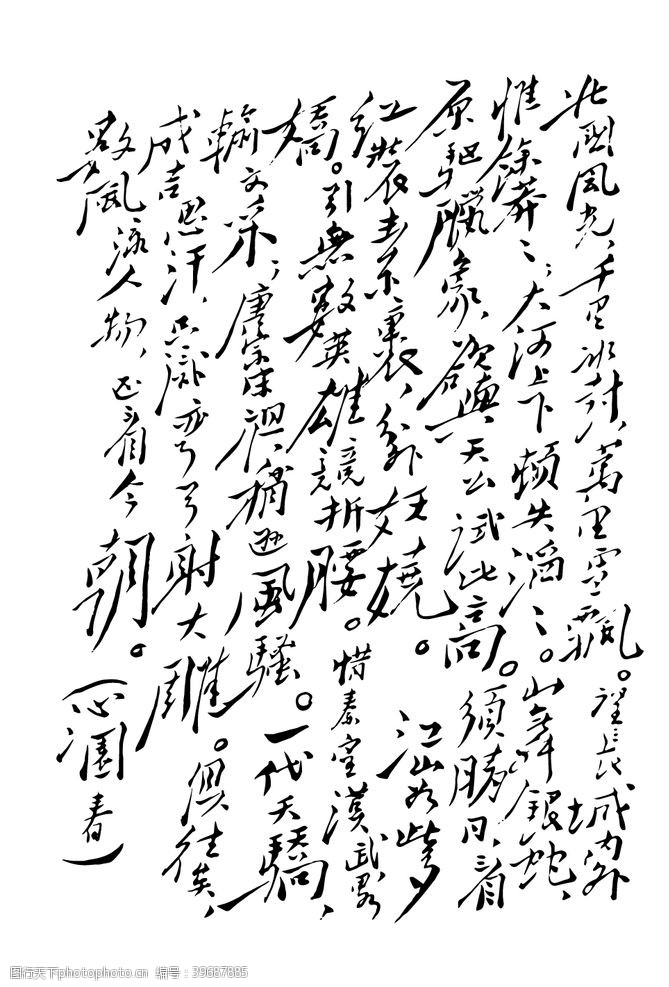 北國風光，千里冰封，萬里雪飄。望長城內外
惟餘莽〻；大河上下頓失滔〻。山舞銀蛇，
原驅臘象，欲與天公試比高。須晴日，看
紅裝素裹，分外妖嬈。江山如此多
嬌。引無數英雄競折腰。惜秦皇漢武，略
輸文采；唐宗宋祖，稍遜風騷。一代天驕，
成吉思汗，只識彎弓射大雕。俱往矣，
數風流人物，還看今朝。（沁園春）
图行天下photophoto.cn 编号：39687885